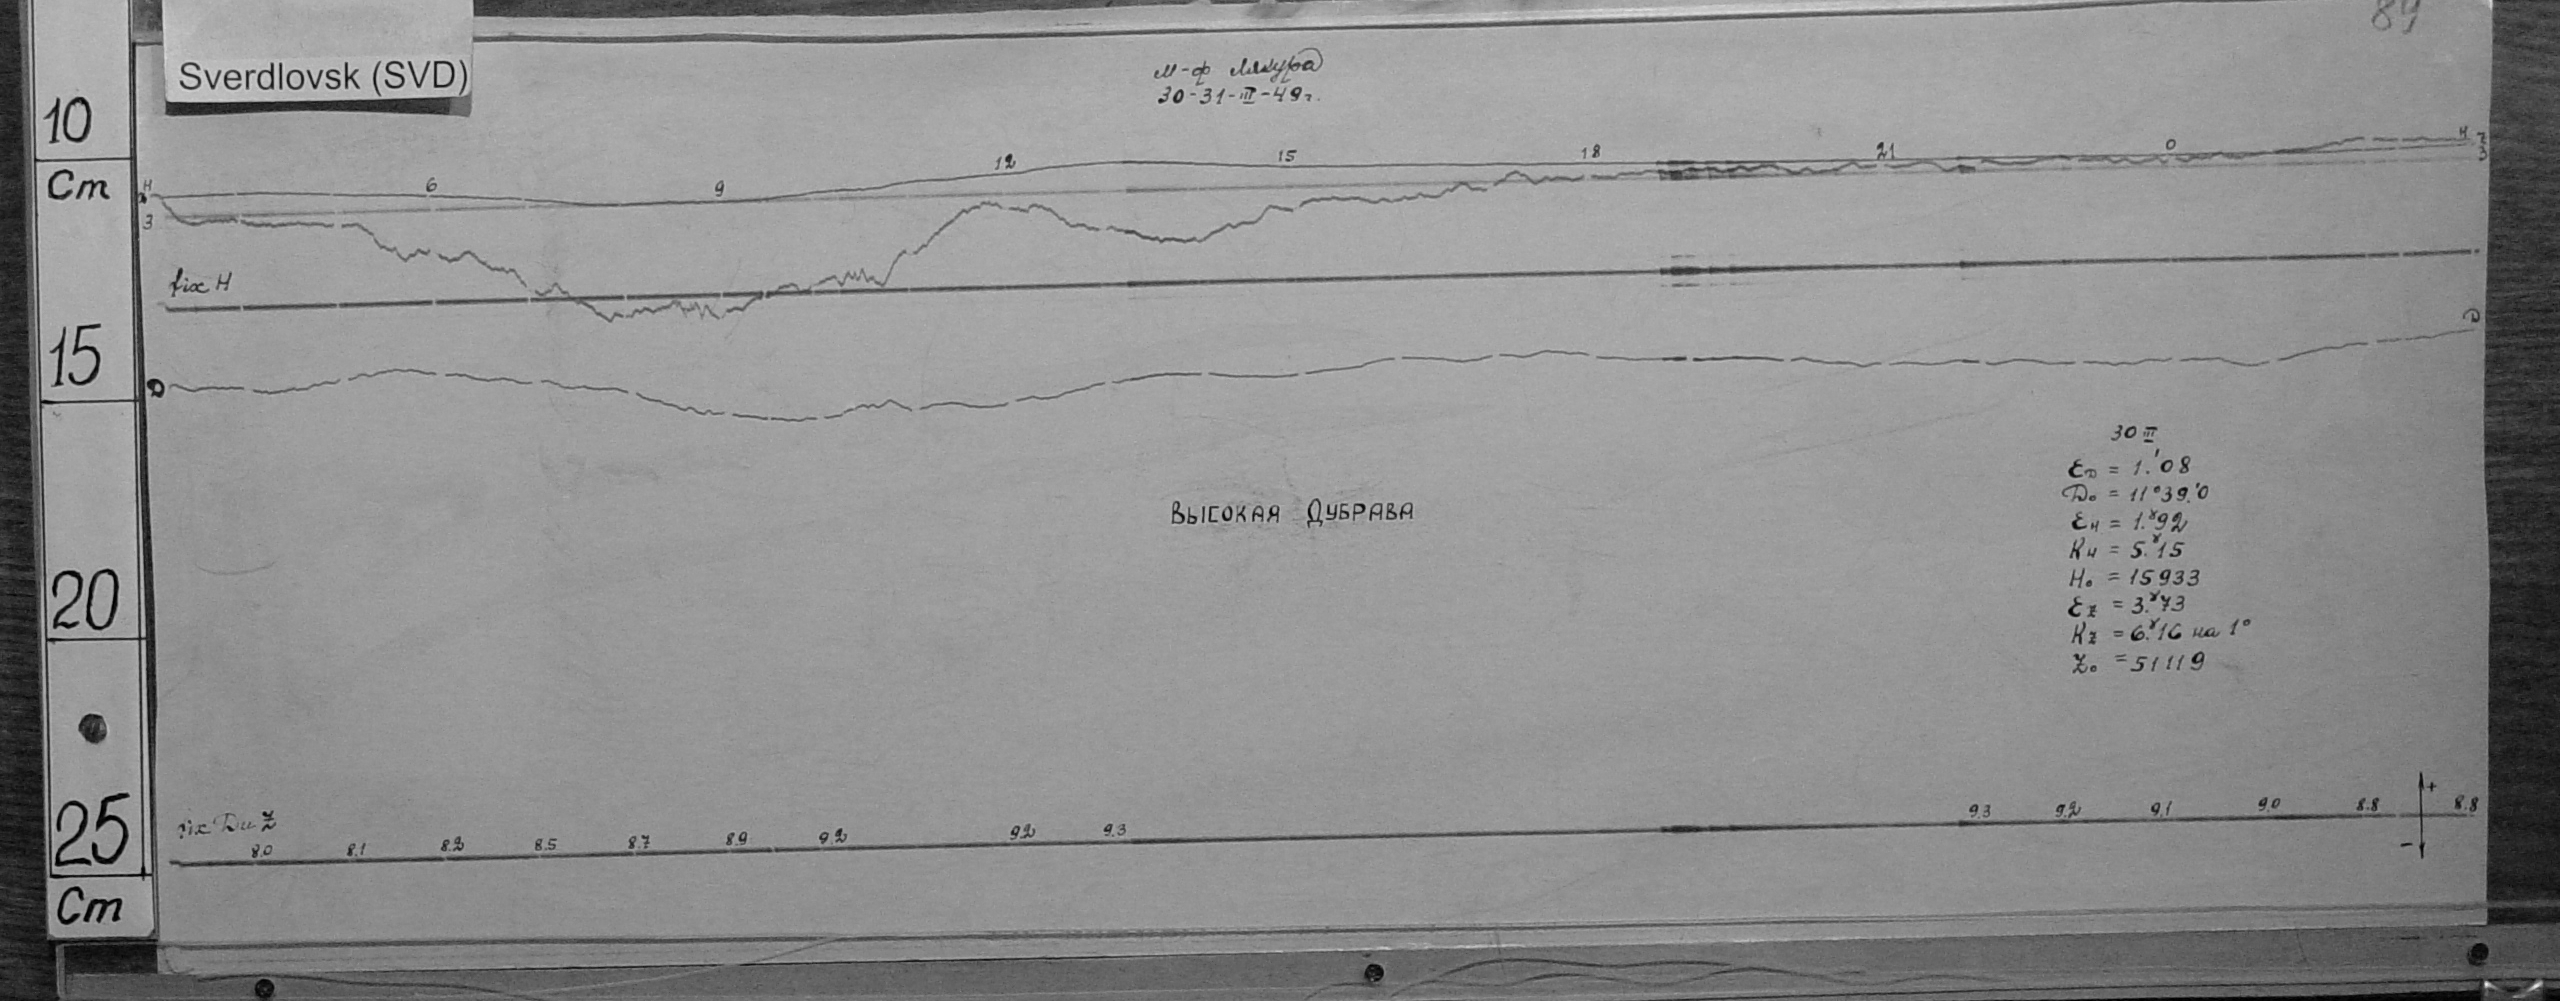 89
Sverdlovsk (SVD)
м-ф
30-31-III-49г.
10
Cm
15
20
25
Cm
6 9 12 15 18 21 0
H
Z
3
H
Z
3
fix H
D
D
30 III
ε_D = 1.'08
D₀ = 11°39.'0
ε_H = 1.ˠ92
K_H = 5.ˠ15
H₀ = 15933
ε_Z = 3.ˠ73
K_Z = 6.ˠ16 на 1°
Z₀ = 51119
ВЫСОКАЯ ДУБРАВА
fix D и Z
8.0 8.1 8.2 8.5 8.7 8.9 9.2 9.2 9.3 9.3 9.2 9.1 9.0 8.8 8.8
+
-